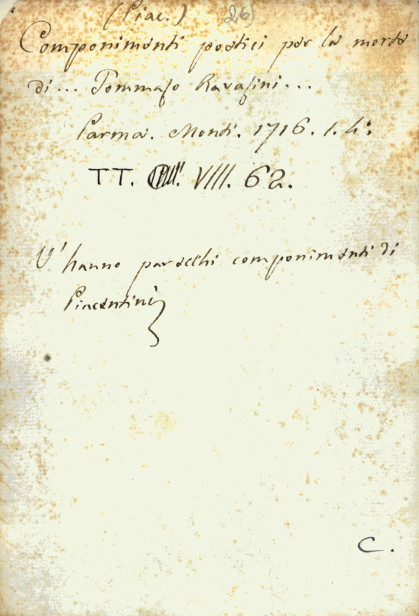 (Piac.) 26)
Componimenti poetici per la morte
di... Tommaso Ravasini...
Parma. Monti. 1716. 1. 4°.
TT. VIII. 62.
V'hanno parecchi componimenti di
Piacentini
C.